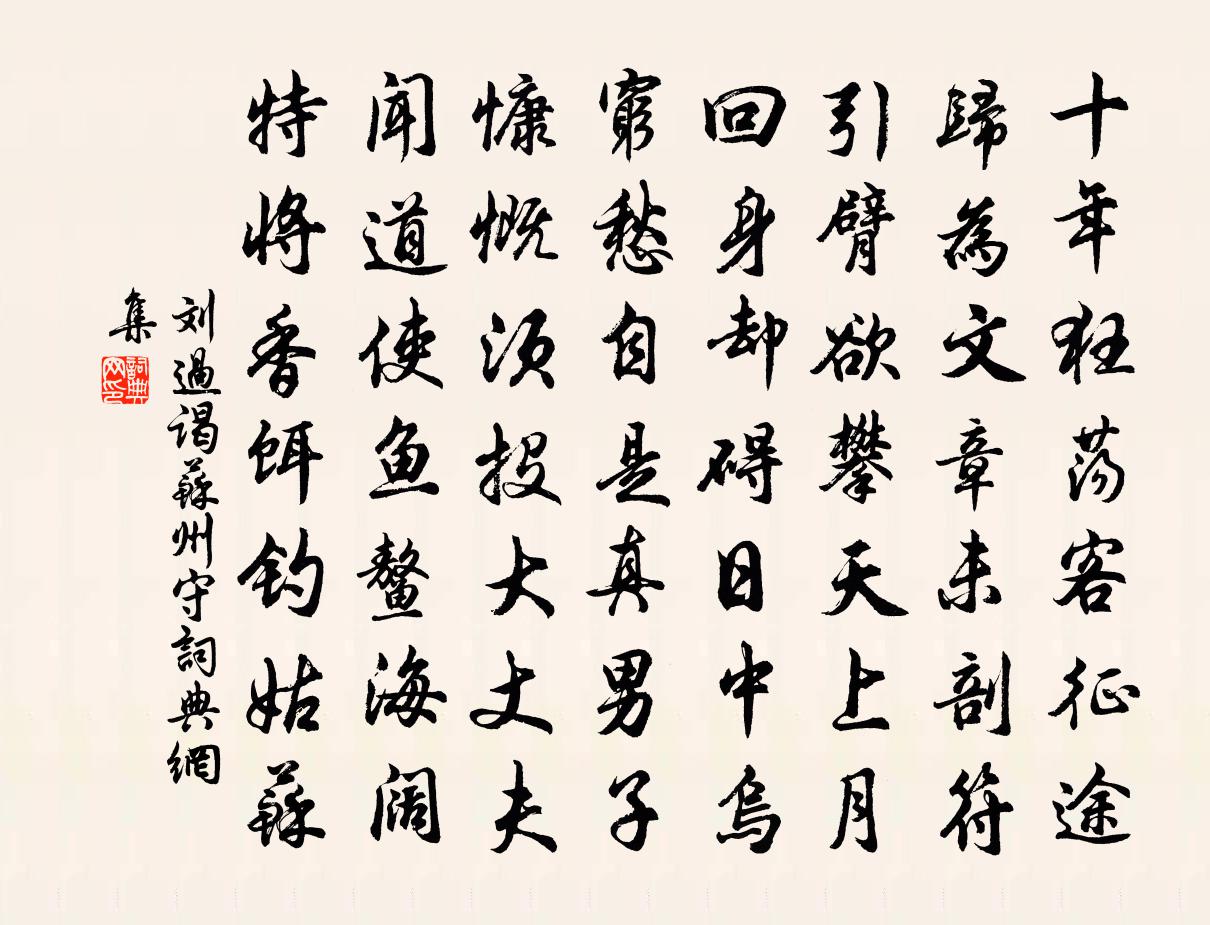 十年狂荡客征途
歸為文章未剖符
引臂欲攀天上月
回身却碍日中烏
窮愁自是真男子
慷慨须投大丈夫
闻道使鱼鳌海阔
特將香餌钓姑蘇
刘過谒蘇州守詞典網
集
詞典网印